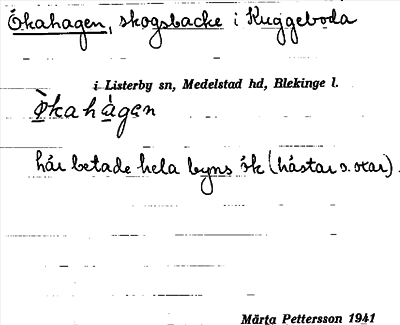 Ökahagen, skogsbacke i Kuggeboda
i Listerby sn, Medelstad hd, Blekinge l.
Ø̀kahàgen
här betade hela byns ök (hästar o. oxar).
Märta Pettersson 1941